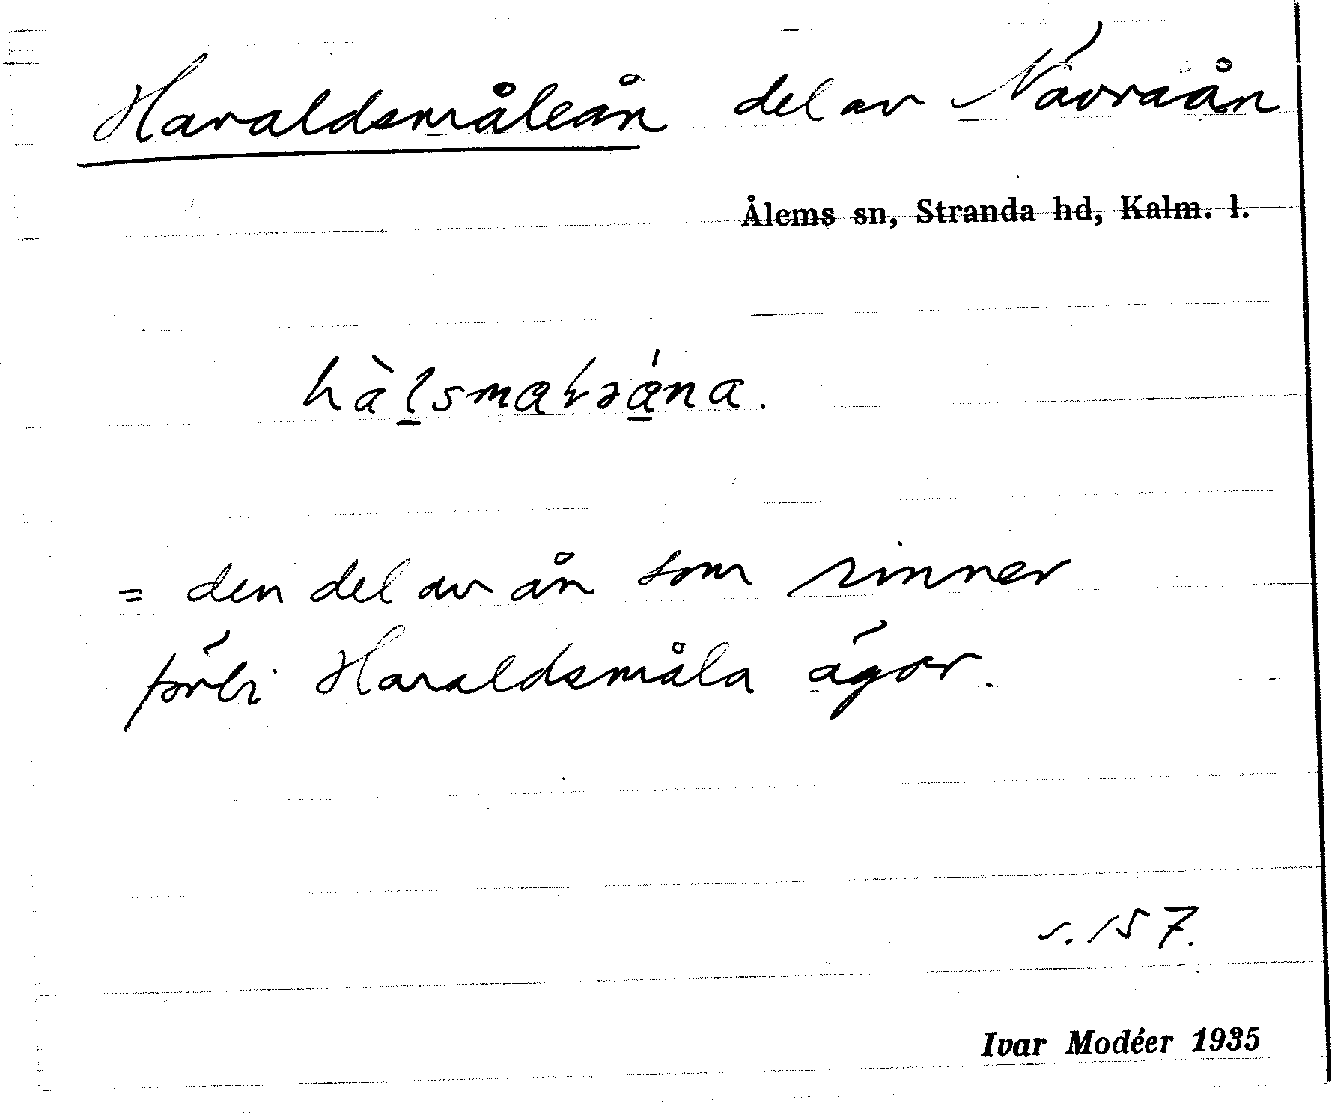 Haraldsmåleån del av Návraån
Ålems sn, Stranda hd, Kalm. l.
= den del av ån som rinner
förbi Haraldsmåla ägor.
s. 157.
Ivar Modéer 1935